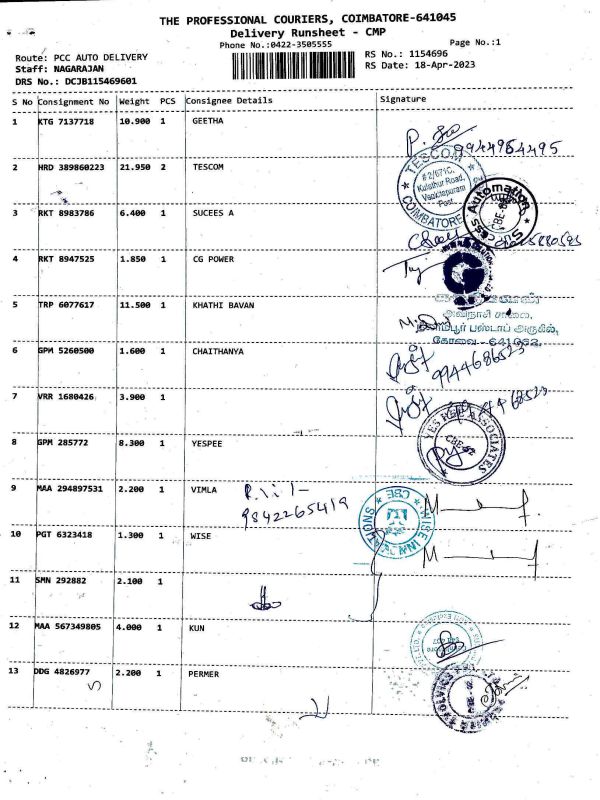 THE PROFESSIONAL COURIERS, COIMBATORE-641045
Delivery Runsheet - CMP
Phone No.:0422-3505555
Page No.:1
Route: PCC AUTO DELIVERY
Staff: NAGARAJAN
DRS No.: DCJB115469601
RS No.: 1154696
RS Date: 18-Apr-2023
S No Consignment No Weight PCS Consignee Details Signature
1 KTG 7137718 10.900 1 GEETHA
9944954495
2 HRD 389860223 21.950 2 TESCOM
TESCOM
# 2/671C,
Kalathur Road,
COIMBATORE
3 RKT 8983786 6.400 1 SUCEES A
4 RKT 8947525 1.850 1 CG POWER
5 TRP 6077617 11.500 1 KHATHI BAVAN
அவிநாசி சாலை,
பஸ்டாப் அருகில்,
கோவை - 641062.
6 GPM 5260500 1.600 1 CHAITHANYA
9944686523
7 VRR 1680426 3.900 1
8 GPM 285772 8.300 1 YESPEE
ASSOCIATES
9 MAA 294897531 2.200 1 VIMLA
9842265419
10 PGT 6323418 1.300 1 WISE
WISE
CBE
11 SMN 292882 2.100 1
12 MAA 567349805 4.000 1 KUN
13 DDG 4826977 2.200 1 PERMER